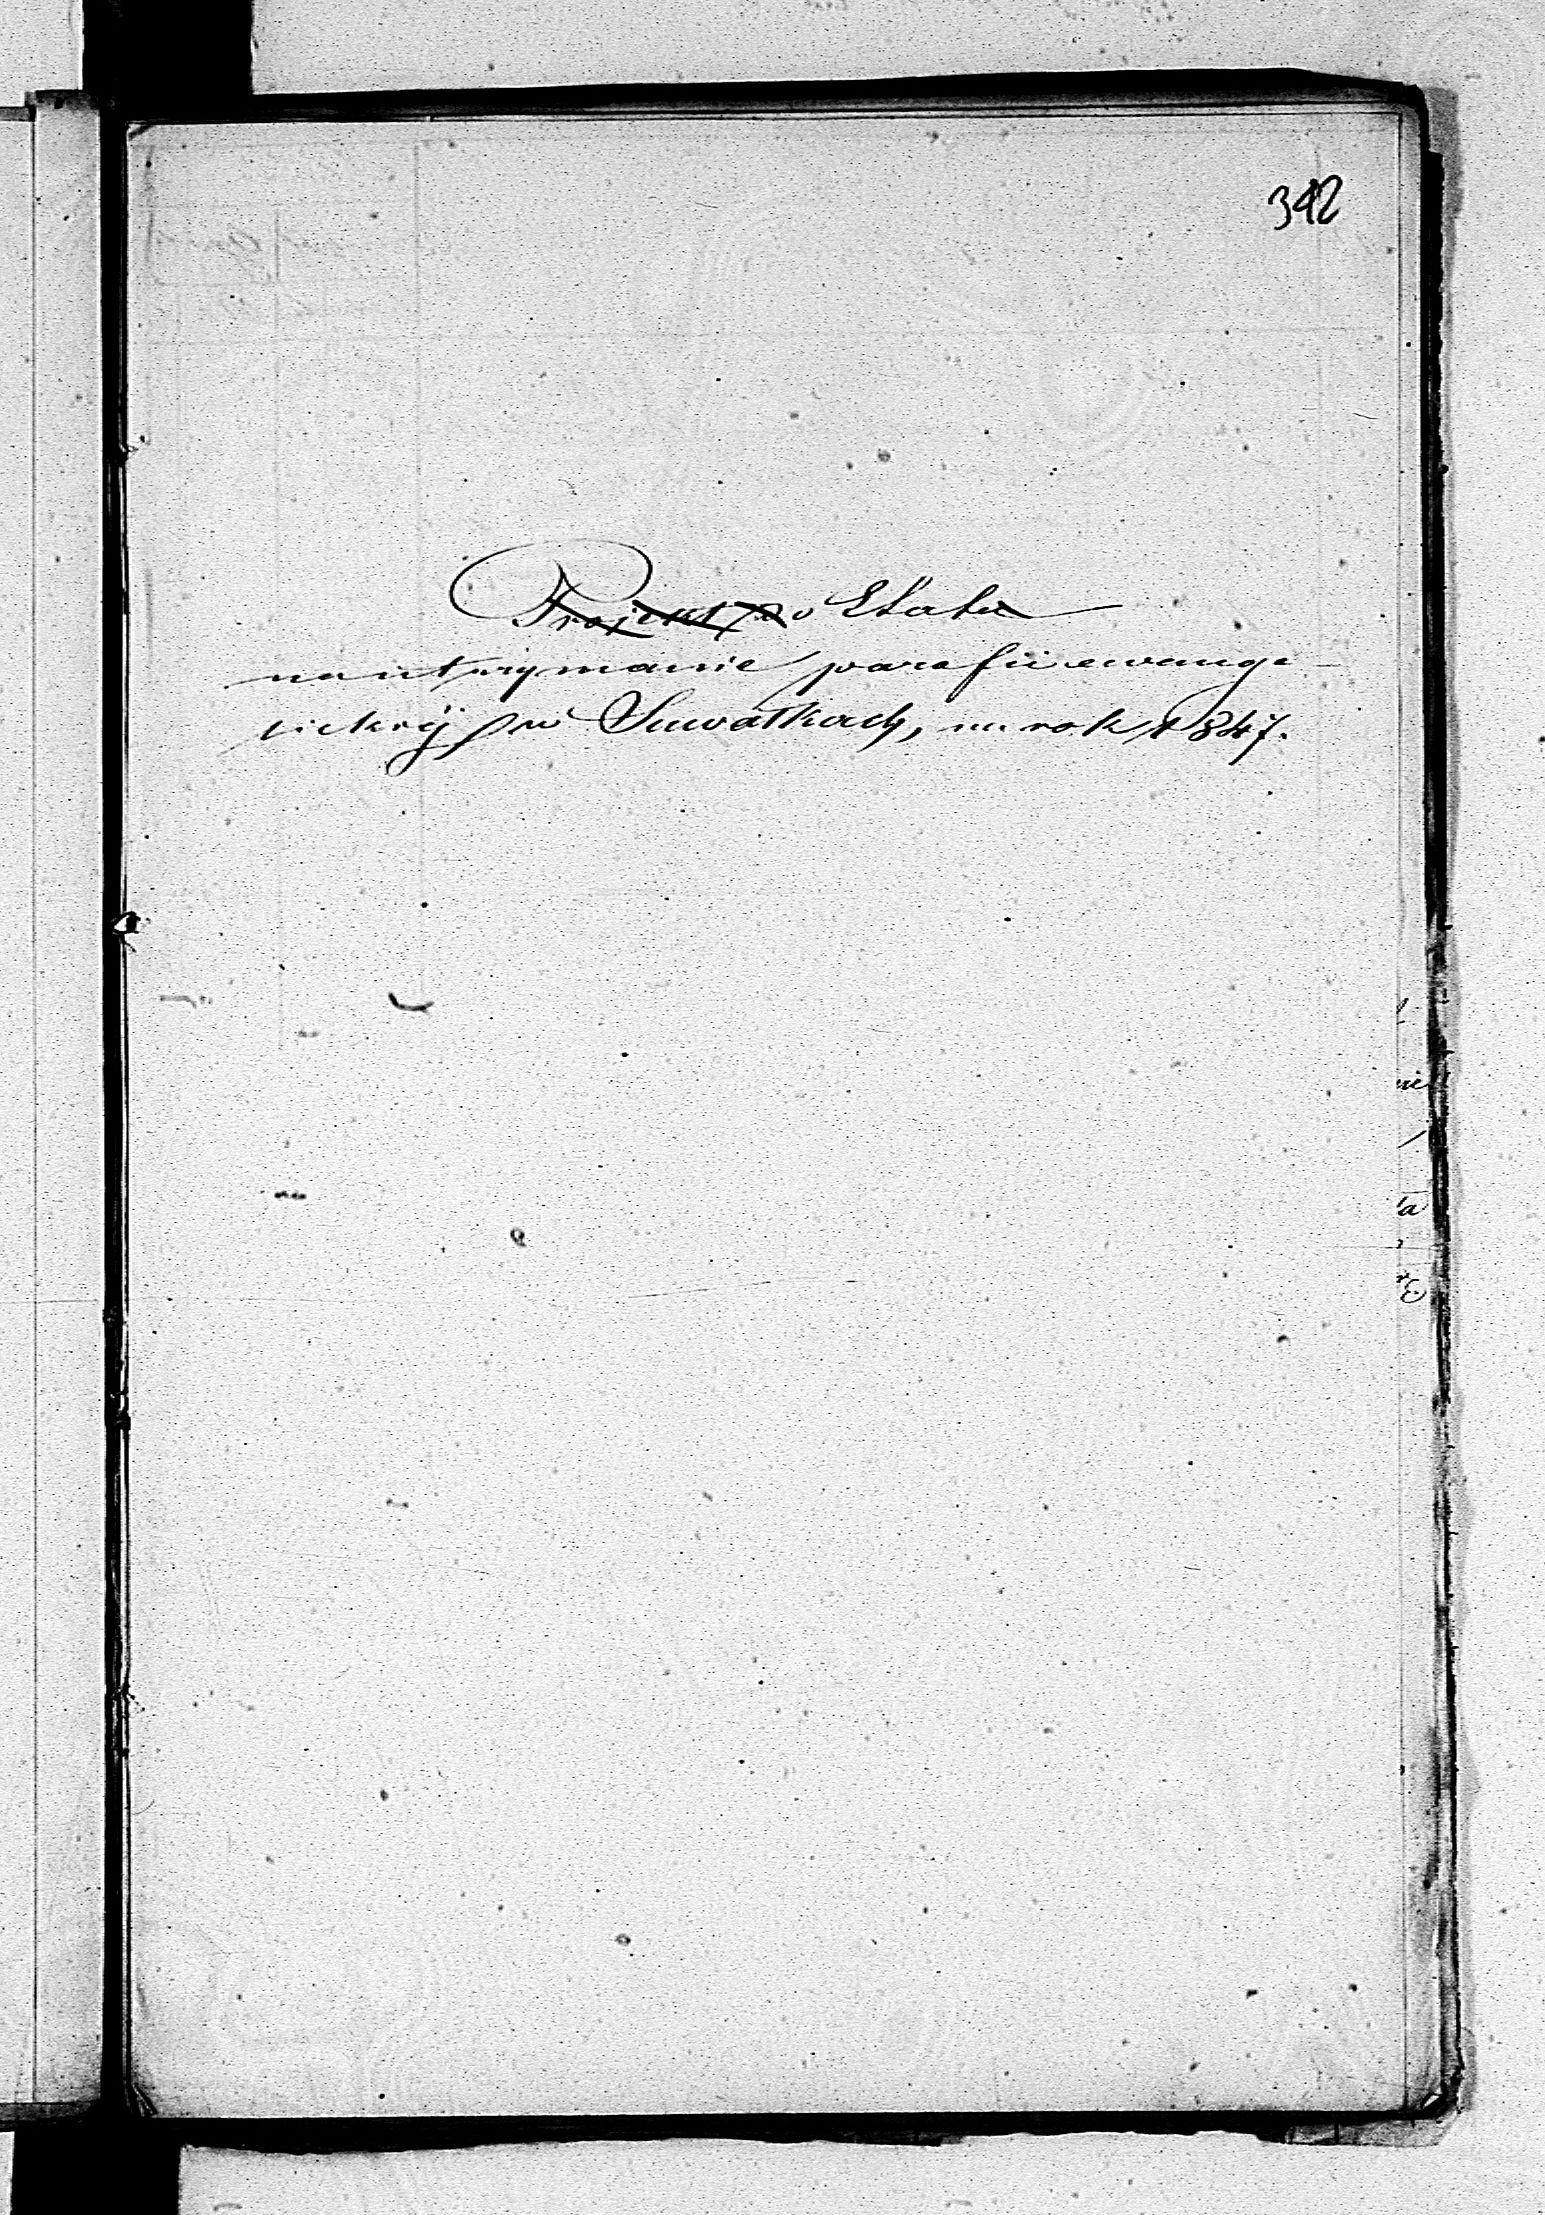 342
Projekt do Etatu
na utrzymanie parafii ewange-
lickiéj w Suwałkach, na rok 1847.